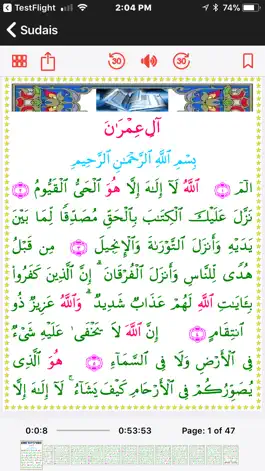 TestFlight 2:04 PM 74%
Sudais
30 30
آل عِمْرَٰنَ
بِسْمِ ٱللَّهِ ٱلرَّحْمَٰنِ ٱلرَّحِيمِ
الٓمٓ ۝١ ٱللَّهُ لَآ إِلَٰهَ إِلَّا هُوَ ٱلْحَىُّ ٱلْقَيُّومُ ۝٢
نَزَّلَ عَلَيْكَ ٱلْكِتَٰبَ بِٱلْحَقِّ مُصَدِّقًا لِّمَا بَيْنَ
يَدَيْهِ وَأَنزَلَ ٱلتَّوْرَىٰةَ وَٱلْإِنجِيلَ ۝٣ مِن قَبْلُ
هُدًى لِّلنَّاسِ وَأَنزَلَ ٱلْفُرْقَانَ ۗ إِنَّ ٱلَّذِينَ كَفَرُوا۟
بِـَٔايَٰتِ ٱللَّهِ لَهُمْ عَذَابٌ شَدِيدٌ ۗ وَٱللَّهُ عَزِيزٌ ذُو
ٱنتِقَامٍ ۝٤ إِنَّ ٱللَّهَ لَا يَخْفَىٰ عَلَيْهِ شَىْءٌ
فِى ٱلْأَرْضِ وَلَا فِى ٱلسَّمَآءِ ۝٥ هُوَ ٱلَّذِى
يُصَوِّرُكُمْ فِى ٱلْأَرْحَامِ كَيْفَ يَشَآءُ ۚ لَآ إِلَٰهَ إِلَّا
0:0:8 0:53:53 Page: 1 of 47